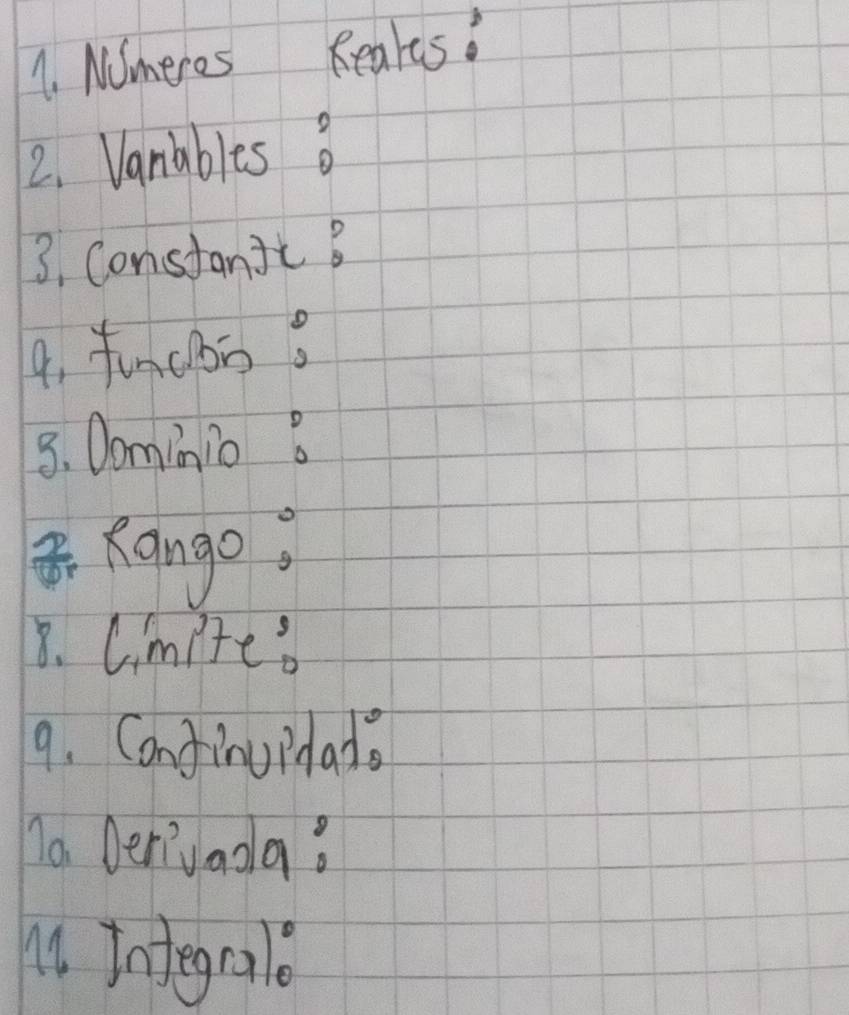 1. Números Reales:
2. Variables:
3. Constante:
4. función:
5. Dominio:
Rango:
8. Límite:
9. Continuidad:
10. Derivada:
11. Integral: